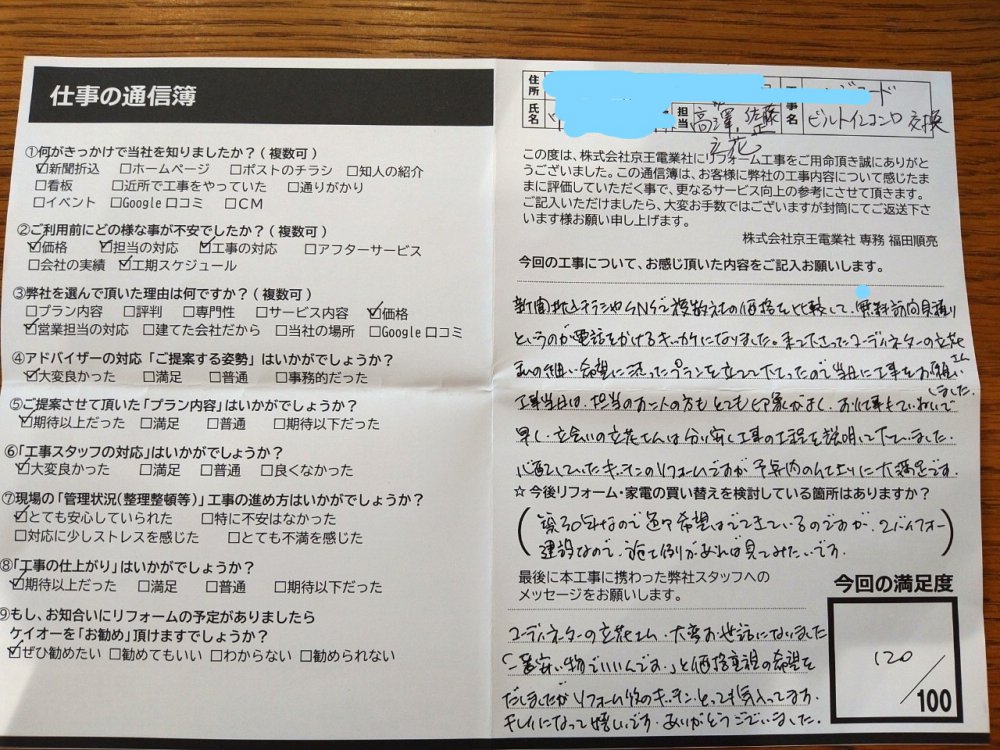 仕事の通信簿
①何がきっかけで当社を知りましたか？(複数可)
☑新聞折込 □ホームページ □ポストのチラシ □知人の紹介
□看板 □近所で工事をやっていた □通りがかり
□イベント □Google口コミ □CM
②ご利用前にどの様な事が不安でしたか？(複数可)
☑価格 ☑担当の対応 ☑工事の対応 □アフターサービス
□会社の実績 ☑工期スケジュール
③弊社を選んで頂いた理由は何ですか？(複数可)
□プラン内容 □評判 □専門性 □サービス内容 ☑価格
☑営業担当の対応 □建てた会社だから □当社の場所 □Google口コミ
④アドバイザーの対応「ご提案する姿勢」はいかがでしょうか？
☑大変良かった □満足 □普通 □事務的だった
⑤ご提案させて頂いた「プラン内容」はいかがでしょうか？
☑期待以上だった □満足 □普通 □期待以下だった
⑥「工事スタッフの対応」はいかがでしょうか？
☑大変良かった □満足 □普通 □良くなかった
⑦現場の「管理状況(整理整頓等)」工事の進め方はいかがでしょうか？
☑とても安心していられた □特に不安はなかった
□対応に少しストレスを感じた □とても不満を感じた
⑧「工事の仕上がり」はいかがでしょうか？
☑期待以上だった □満足 □普通 □期待以下だった
⑨もし、お知合いにリフォームの予定がありましたら
ケイオーを「お勧め」頂けますでしょうか？
☑ぜひ勧めたい □勧めてもいい □わからない □勧められない
住所
氏名
担当 高澤、佐藤
立花
工事名
ビルトインコンロ交換
この度は、株式会社京王電業社にリフォーム工事をご用命頂き誠にありがと
うございました。この通信簿は、お客様に弊社の工事内容について感じたま
まに評価していただく事で、更なるサービス向上の参考にさせて頂きます。
ご記入いただけましたら、大変お手数ではございますが封筒にてご返送下さ
います様お願い申し上げます。
株式会社京王電業社 専務 福田順亮
今回の工事について、お感じ頂いた内容をご記入お願いします。
新聞折込チラシやSNSで複数社の価格を比較して、無料訪問見積り
というのが電話をかけるキッカケになりました。来て下さったコーディネターの立花さん
私の細い希望に添ったプランを立てて下さったので当日に工事をお願いしました。
工事当日は、担当のお二人の方もとても印象がよく、お仕事もていねいで
早く、立会いの立花さんは分り安く工事の工程を説明して下さいました。
心配していたキッチンのリフォームですが予算内の仕上りに大満足です。
☆今後リフォーム・家電の買い替えを検討している箇所はありますか？
(築30年なので希望はでてきているのですが、2バイフォー
建設なので、施工例があれば見てみたいです。)
最後に本工事に携わった弊社スタッフへの
メッセージをお願いします。
コーディネターの立花さん、大変お世話になりました
「一番安い物でいいんです。」と価格重視の希望を
だしましたがリフォーム後のキッチン、とっても気入ってます。
キレイになって嬉しいです。ありがとうございました。
今回の満足度
120/100